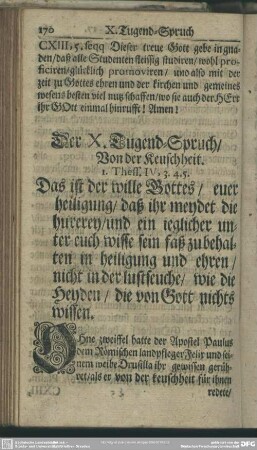 170 X. Tugend-Spruch
CXIII, 5. seqq Dieser treue Gott gebe in gna-
den/ daß alle Studenten fleissig studiren/ wohl pro-
ficiren/ glücklich promoviren/ und also mit der
zeit zu Gottes ehren und der kirchen und gemeines
wesens besten viel nutz schaffen/ wo sie auch der HErr
ihr GOtt einmal hinrufft! Amen!
Der X. Tugend-Spruch/
Von der Keuschheit.
1. Thess. IV, 3. 4. 5.
Das ist der wille Gottes/ euer
heiligung/ daß ihr meydet die
hurerey/ und ein ieglicher un-
ter euch wisse sein faß zu behal-
ten in heiligung und ehren/
nicht in der lustseuche/ wie die
Heyden/ die von Gott nichts
wissen.
Ohne zweiffel hatte der Apostel Paulus
dem Römischen landpfleger Felix und sei-
nem weibe Drusilla ihr gewissen gerüh-
ret/ als er von der keuschheit für ihnen
redete/